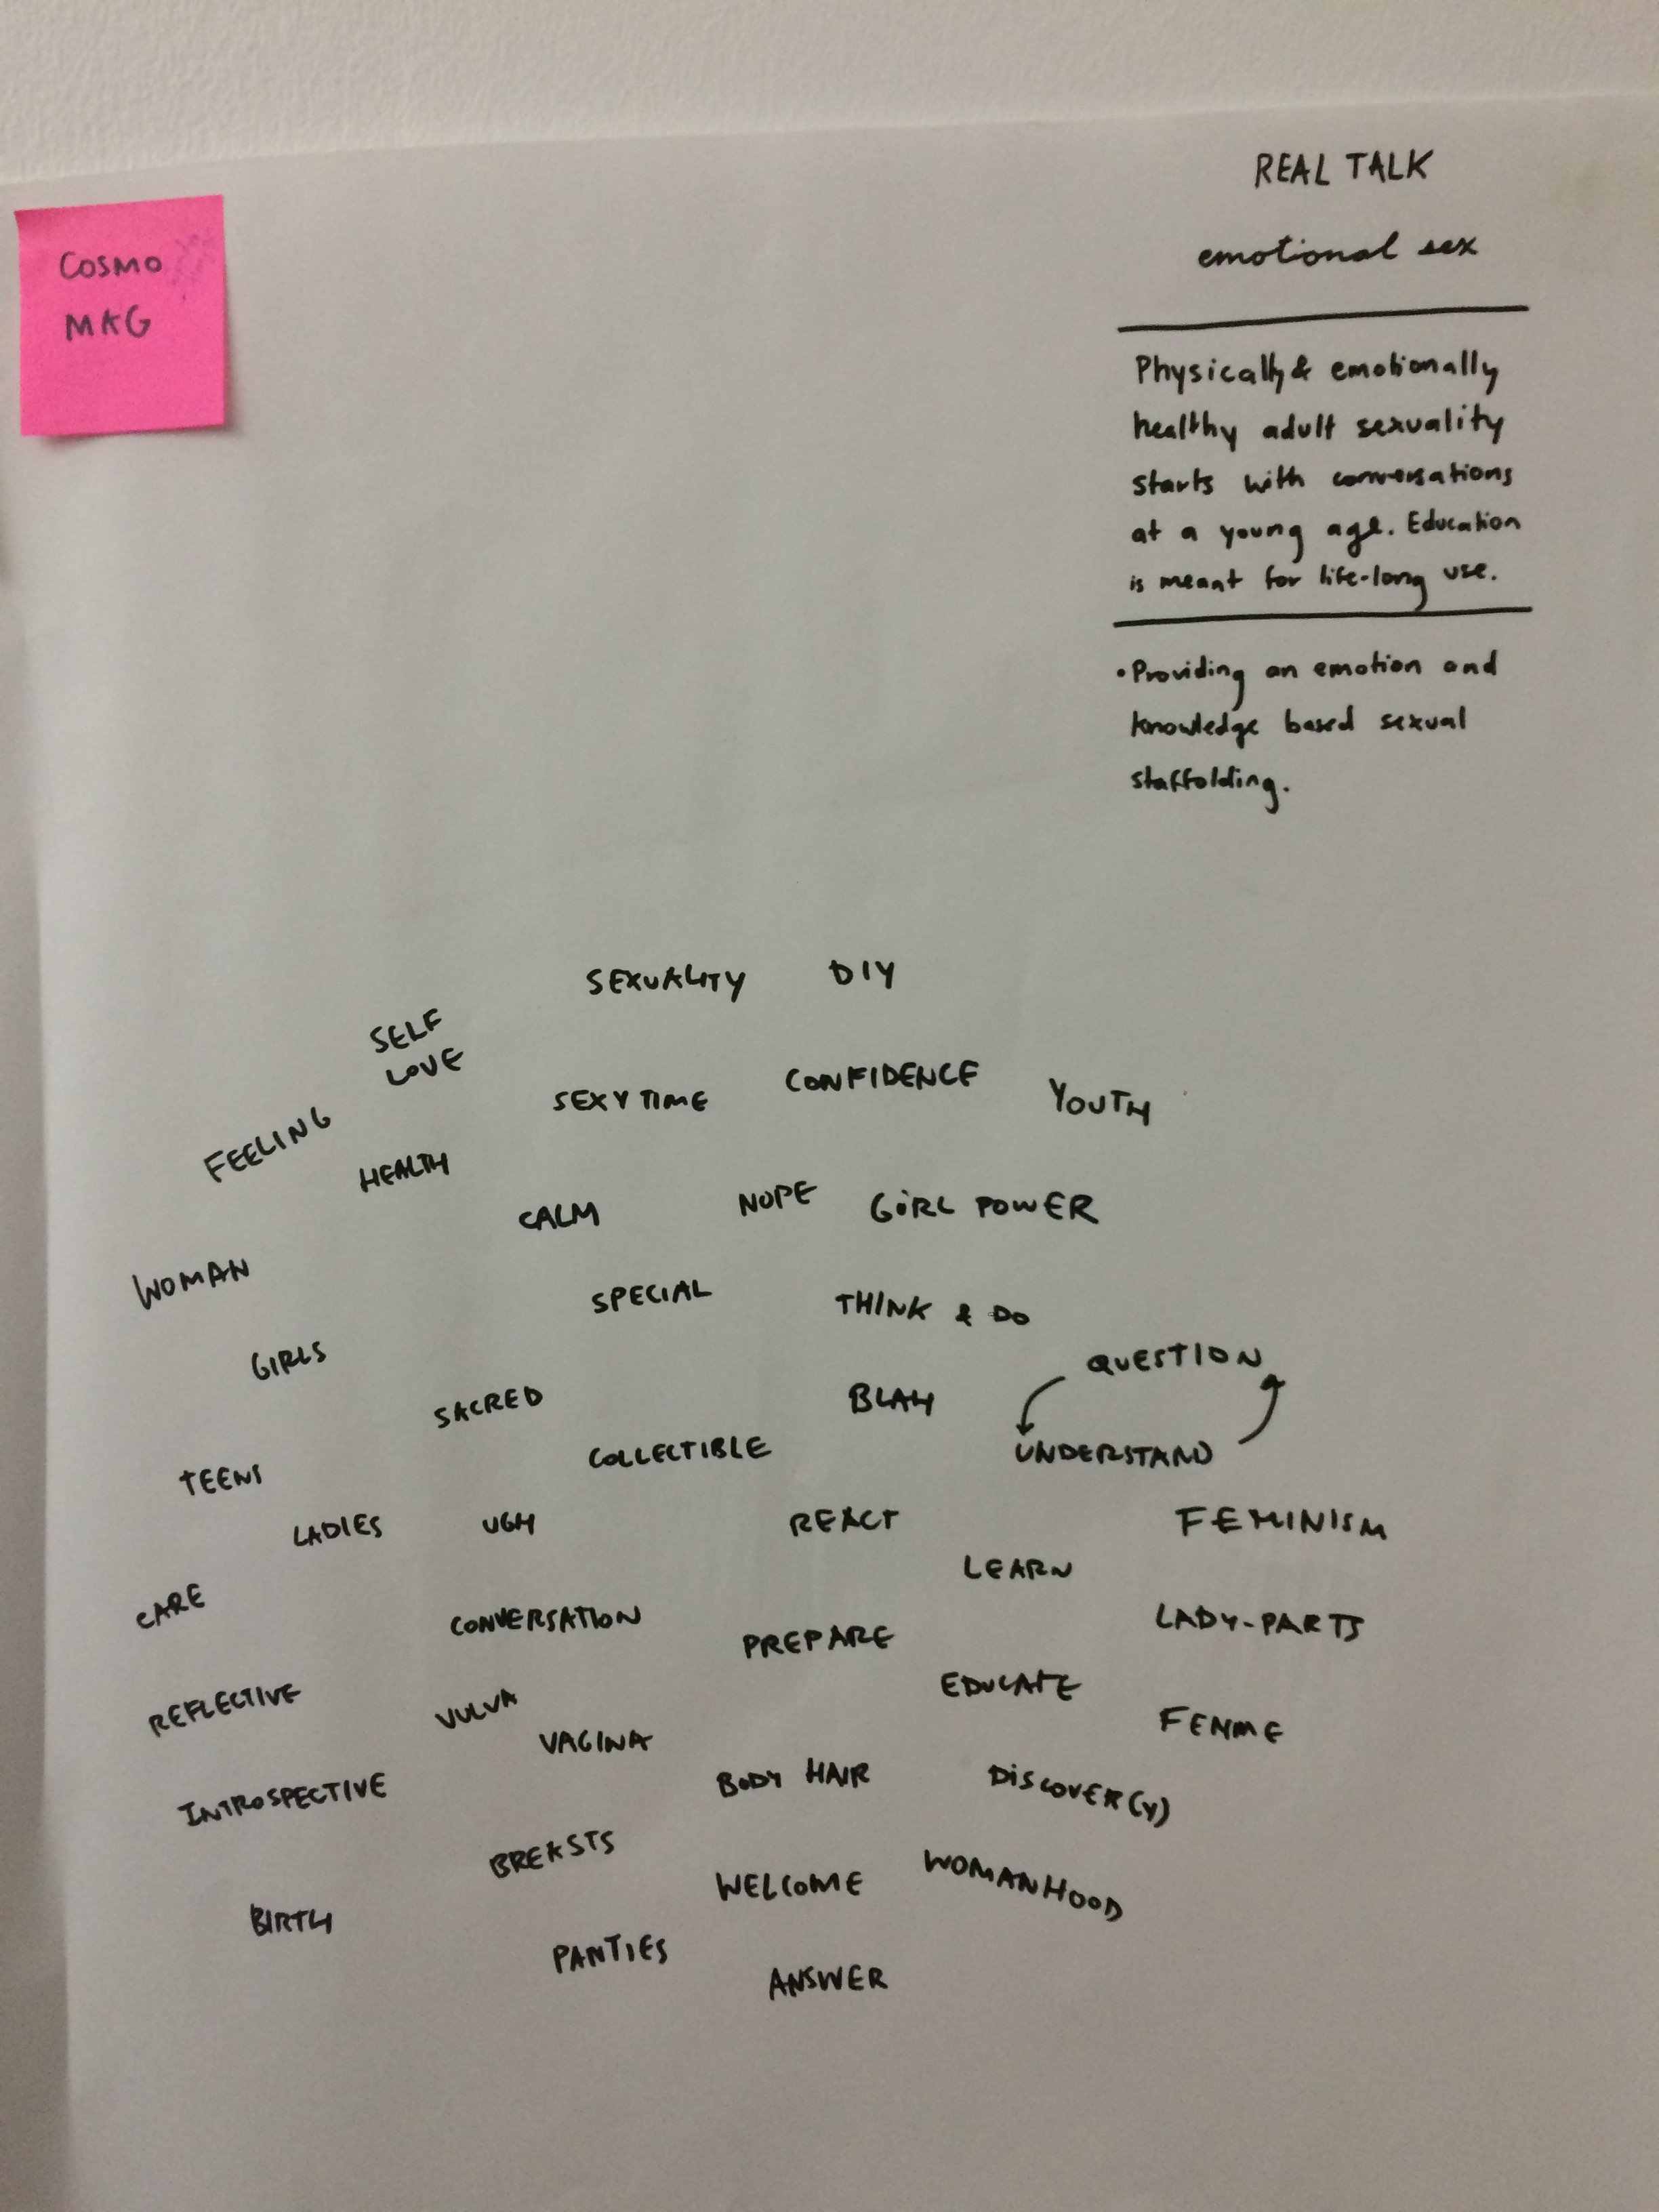 COSMO
MAG
REAL TALK
emotional sex
Physically & emotionally
healthy adult sexuality
starts with conversations
at a young age. Education
is meant for life-long use.
• Providing an emotion and
knowledge based sexual
staffolding.
SEXUALITY
DIY
SELF
LOVE
SEXY TIME
CONFIDENCE
YOUTH
FEELING
HEALTH
CALM
NOPE
GIRL POWER
WOMAN
SPECIAL
THINK & DO
GIRLS
QUESTION
SACRED
BLAH
UNDERSTAND
COLLECTIBLE
TEENS
LADIES
UGH
REACT
FEMINISM
LEARN
CARE
CONVERSATION
PREPARE
LADY-PARTS
REFLECTIVE
VULVA
EDUCATE
VAGINA
FEMME
INTROSPECTIVE
BODY HAIR
DISCOVER(Y)
BREASTS
WELCOME
WOMANHOOD
BIRTH
PANTIES
ANSWER